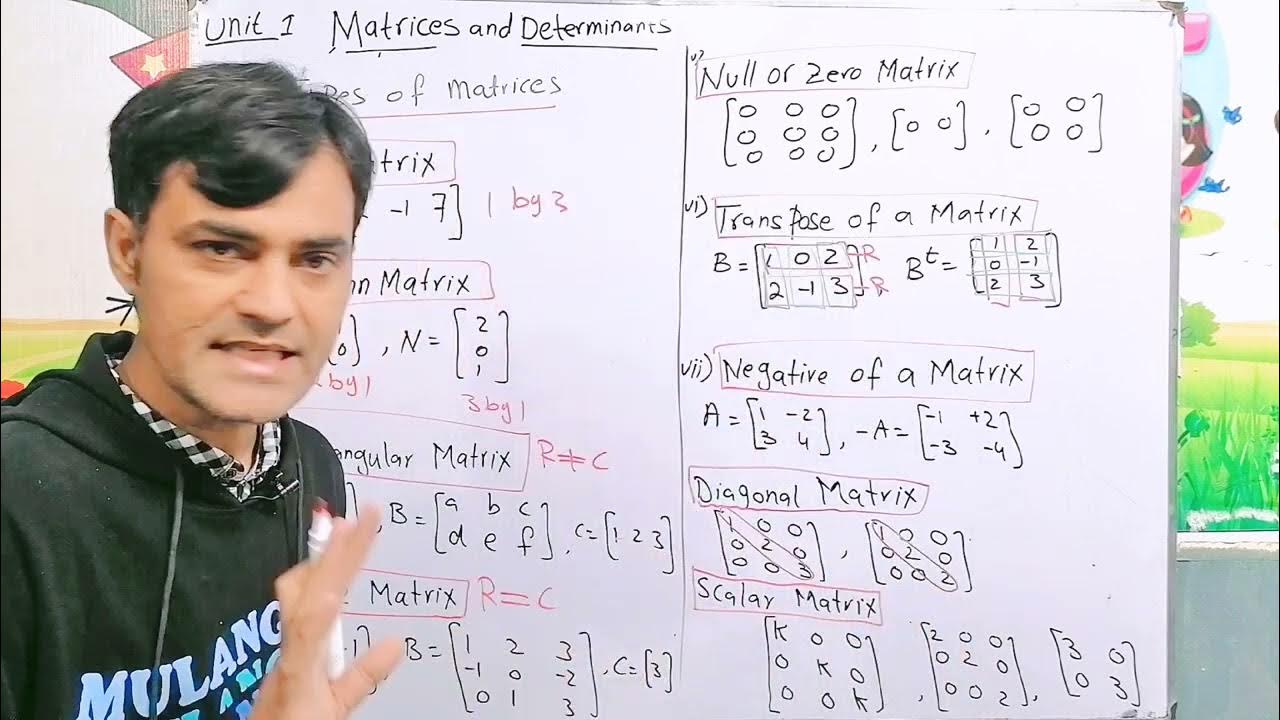 Unit 1 Matrices and Determinants
of matrices
-1 7] 1 by 3
Matrix
[0], N = [2
0
1]
by 1
3 by 1
Matrix R≠C
, B = [a b c
d e f], C = [1 2 3]
Matrix R=C
B = [1 2 3
-1 0 -2
0 1 3], C = [3]
Null or Zero Matrix
[0 0 0
0 0 0
0 0 0], [0 0], [0 0
0 0]
vi) Transpose of a Matrix
B = [1 0 2 -R
2 -1 3] -R
Bᵗ = [1 2
0 -1
2 3]
vii) Negative of a Matrix
A = [1 -2
3 4], -A = [-1 +2
-3 -4]
Diagonal Matrix
[1 0 0
0 2 0
0 0 3], [1 0 0
0 2 0
0 0 2]
Scalar Matrix
[K 0 0
0 K 0
0 0 K], [2 0 0
0 2 0
0 0 2], [3 0
0 3]
MULANG